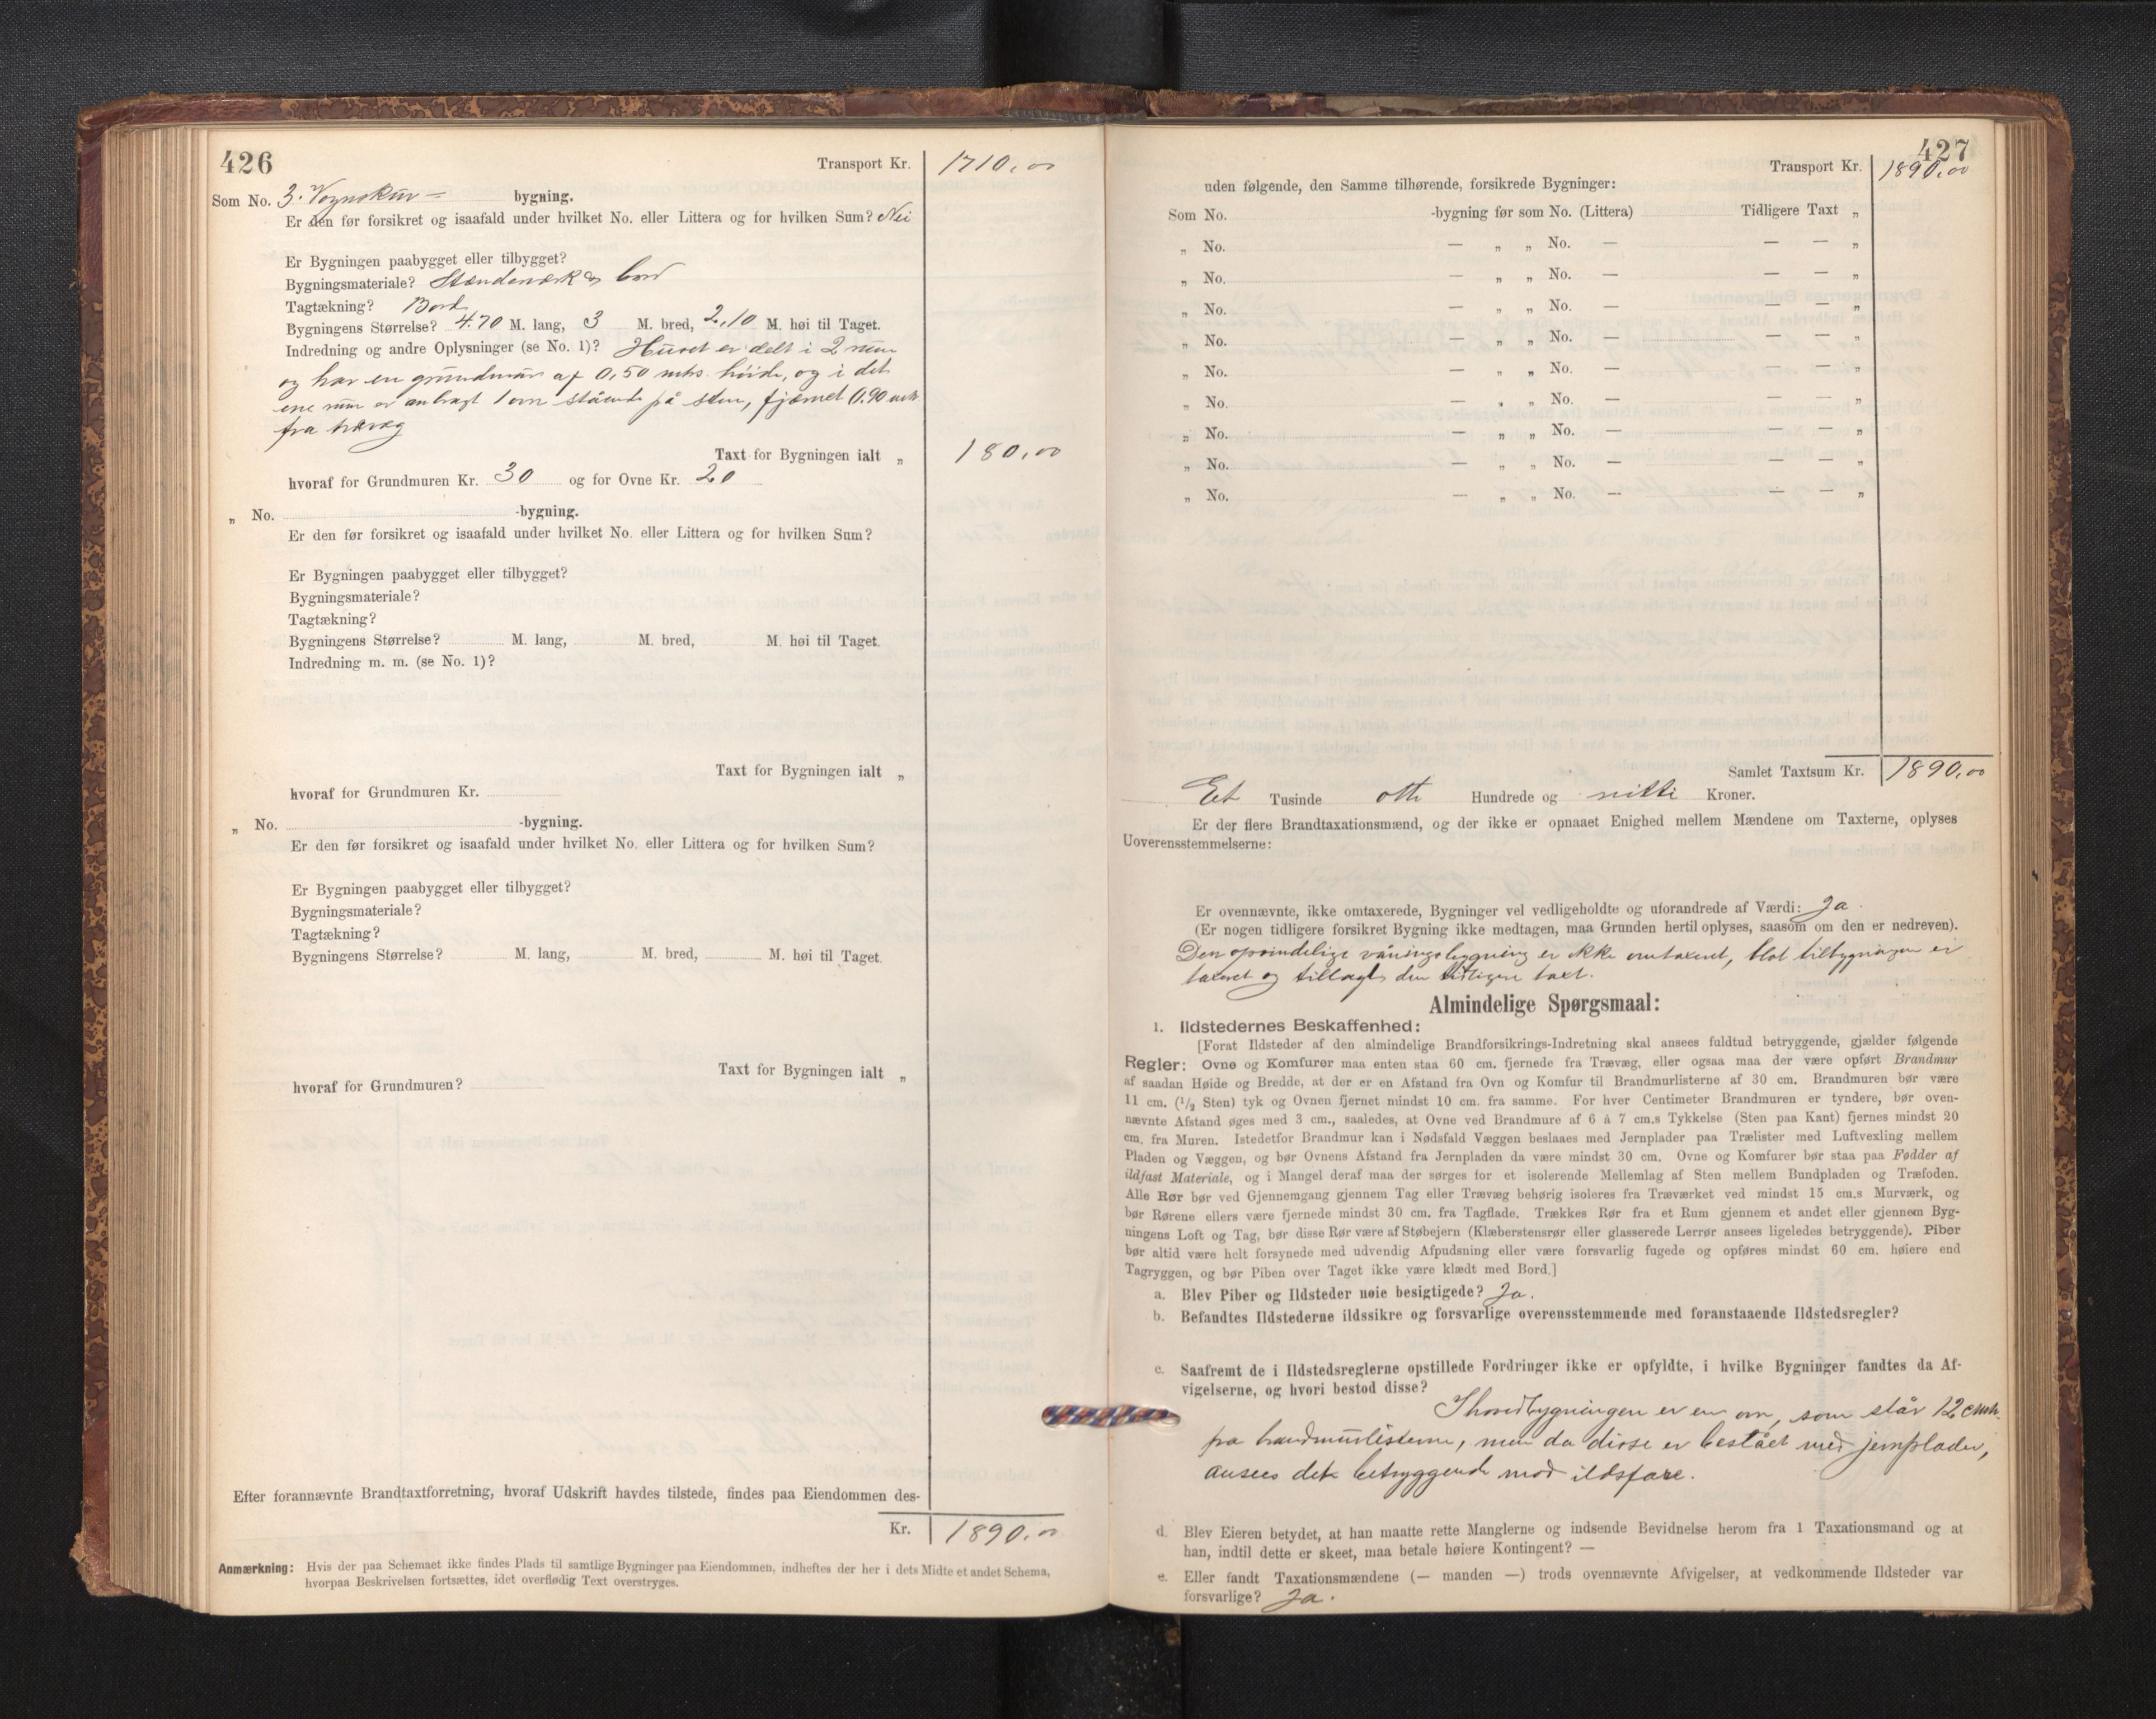 426
Transport Kr. 1710,00
Som No. 3. Vognskur - bygning.
Er den før forsikret og isaafald under hvilket No. eller Littera og for hvilken Sum? Nei
Er Bygningen paabygget eller tilbygget?
Bygningsmateriale? Stænderværk & bord
Tagtækning? Bord
Bygningens Størrelse? 4.70 M. lang, 3 M. bred, 2,10 M. høi til Taget.
Indredning og andre Oplysninger (se No. 1)? Huset er delt i 2 rum
og har en grundmur af 0,50 mtrs. høide, og i det
ene rum er anbragt 1 ovn stående på sten, fjærnet 0.90 mtr.
fra trævæg
Taxt for Bygningen ialt „ 180,00
hvoraf for Grundmuren Kr. 30 og for Ovne Kr. 20
„ No. -bygning.
Er den før forsikret og isaafald under hvilket No. eller Littera og for hvilken Sum?
Er Bygningen paabygget eller tilbygget?
Bygningsmateriale?
Tagtækning?
Bygningens Størrelse? M. lang, M. bred, M. høi til Taget.
Indredning m. m. (se No. 1)?
Taxt for Bygningen ialt „
hvoraf for Grundmuren Kr.
„ No. -bygning.
Er den før forsikret og isaafald under hvilket No. eller Littera og for hvilken Sum?
Er Bygningen paabygget eller tilbygget?
Bygningsmateriale?
Tagtækning?
Bygningens Størrelse? M. lang, M. bred, M. høi til Taget.
Taxt for Bygningen ialt „
hvoraf for Grundmuren?
Efter forannævnte Brandtaxtforretning, hvoraf Udskrift havdes tilstede, findes paa Eiendommen des-
Kr. 1890,00
Anmærkning: Hvis der paa Schemaet ikke findes Plads til samtlige Bygninger paa Eiendommen, indheftes der her i dets Midte et andet Schema,
hvorpaa Beskrivelsen fortsættes, idet overflødig Text overstryges.
427
Transport Kr. 1890,00
uden følgende, den Samme tilhørende, forsikrede Bygninger:
Som No. -bygning før som No. (Littera) Tidligere Taxt „
„ No. — „ „ No. — — — „
„ No. — „ „ No. — — — „
„ No. — „ „ No. — — — „
„ No. — „ „ No. — — — „
„ No. — „ „ No. — — — „
„ No. — „ „ No. — — — „
„ No. — „ „ No. — — — „
„ No. — „ „ No. — — — „
„ No. — „ „ No. — — — „
Samlet Taxtsum Kr. 1890,00
Et Tusinde otte Hundrede og nitti Kroner.
Er der flere Brandtaxationsmænd, og der ikke er opnaaet Enighed mellem Mændene om Taxterne, oplyses
Uoverensstemmelserne:
Er ovennævnte, ikke omtaxerede, Bygninger vel vedligeholdte og uforandrede af Værdi: Ja.
(Er nogen tidligere forsikret Bygning ikke medtagen, maa Grunden hertil oplyses, saasom om den er nedreven).
Den oprindelige våningsbygning er ikke omtaxeret, blot tilbygningen er
taxeret og tillagt den tidligere taxt.
Almindelige Spørgsmaal:
1. Ildstedernes Beskaffenhed:
[Forat Ildsteder af den almindelige Brandforsikrings-Indretning skal ansees fuldtud betryggende, gjælder følgende
Regler: Ovne og Komfurer maa enten staa 60 cm. fjernede fra Trævæg, eller ogsaa maa der være opført Brandmur
af saadan Høide og Bredde, at der er en Afstand fra Ovn og Komfur til Brandmurlisterne af 30 cm. Brandmuren bør være
11 cm. (1/2 Sten) tyk og Ovnen fjernet mindst 10 cm. fra samme. For hver Centimeter Brandmuren er tyndere, bør oven-
nævnte Afstand øges med 3 cm., saaledes, at Ovne ved Brandmure af 6 à 7 cm.s Tykkelse (Sten paa Kant) fjernes mindst 20
cm. fra Muren. Istedetfor Brandmur kan i Nødsfald Væggen beslaaes med Jernplader paa Trælister med Luftvexling mellem
Pladen og Væggen, og bør Ovnens Afstand fra Jernpladen da være mindst 30 cm. Ovne og Komfurer bør staa paa Fødder af
ildfast Materiale, og i Mangel deraf maa der sørges for et isolerende Mellemlag af Sten mellem Bundpladen og Træfoden.
Alle Rør bør ved Gjennemgang gjennem Tag eller Trævæg behørig isoleres fra Træværket ved mindst 15 cm.s Murværk, og
bør Rørene ellers være fjernede mindst 30 cm. fra Tagflade. Trækkes Rør fra et Rum gjennem et andet eller gjennem Byg-
ningens Loft og Tag, bør disse Rør være af Støbejern (Klæberstensrør eller glasserede Lerrør ansees ligeledes betryggende). Piber
bør altid være helt forsynede med udvendig Afpudsning eller være forsvarlig fugede og opføres mindst 60 cm. høiere end
Tagryggen, og bør Piben over Taget ikke være klædt med Bord.]
a. Blev Piber og Ildsteder nøie besigtigede? Ja.
b. Befandtes Ildstederne ildssikre og forsvarlige overensstemmende med foranstaaende Ildstedsregler?
c. Saafremt de i Ildstedsreglerne opstillede Fordringer ikke er opfyldte, i hvilke Bygninger fandtes da Af-
vigelserne, og hvori bestod disse?
I hovedbygningen er en ovn, som står 12 cmtr.
fra brandmurlisterne, men da disse er beslået med jernplader,
ansees det betryggende mod ildsfare.
d. Blev Eieren betydet, at han maatte rette Manglerne og indsende Bevidnelse herom fra 1 Taxationsmand og at
han, indtil dette er skeet, maa betale høiere Kontingent? —
e. Eller fandt Taxationsmændene (— manden —) trods ovennævnte Afvigelser, at vedkommende Ildsteder var
forsvarlige? Ja.